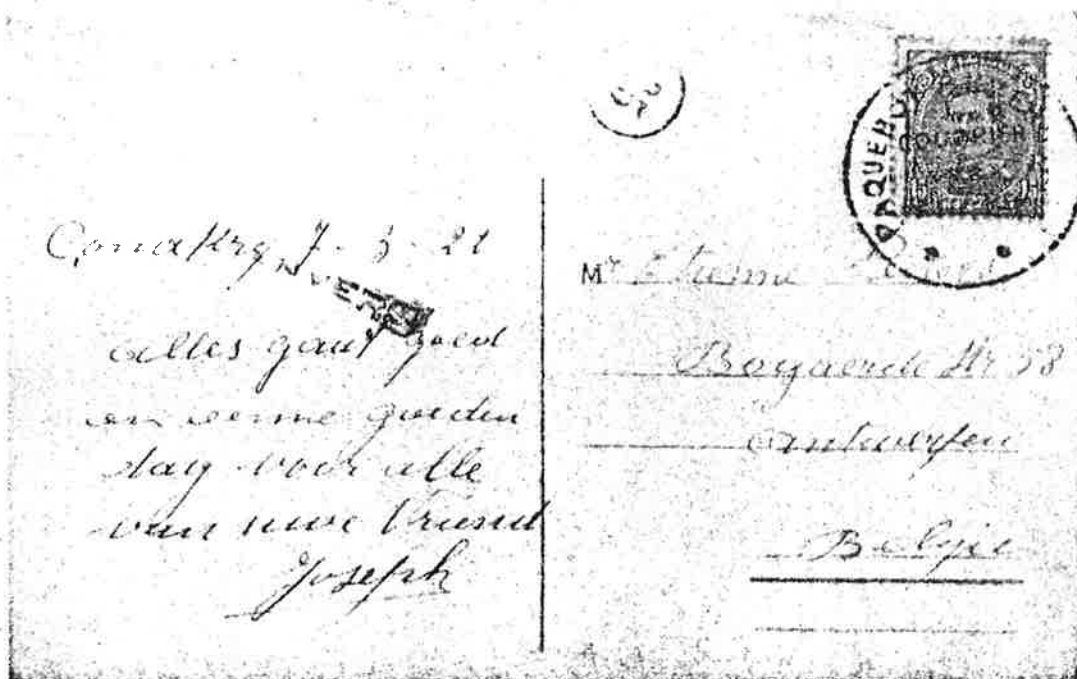 Conakry 7 - 3 - 21
alles gaat goed
en eenne goeden
dag voor alle
van uwe Vriend
Joseph
PAQUEBOT
Mr Etienne
Bogaerde Str 38
Antwerpen
Belgie